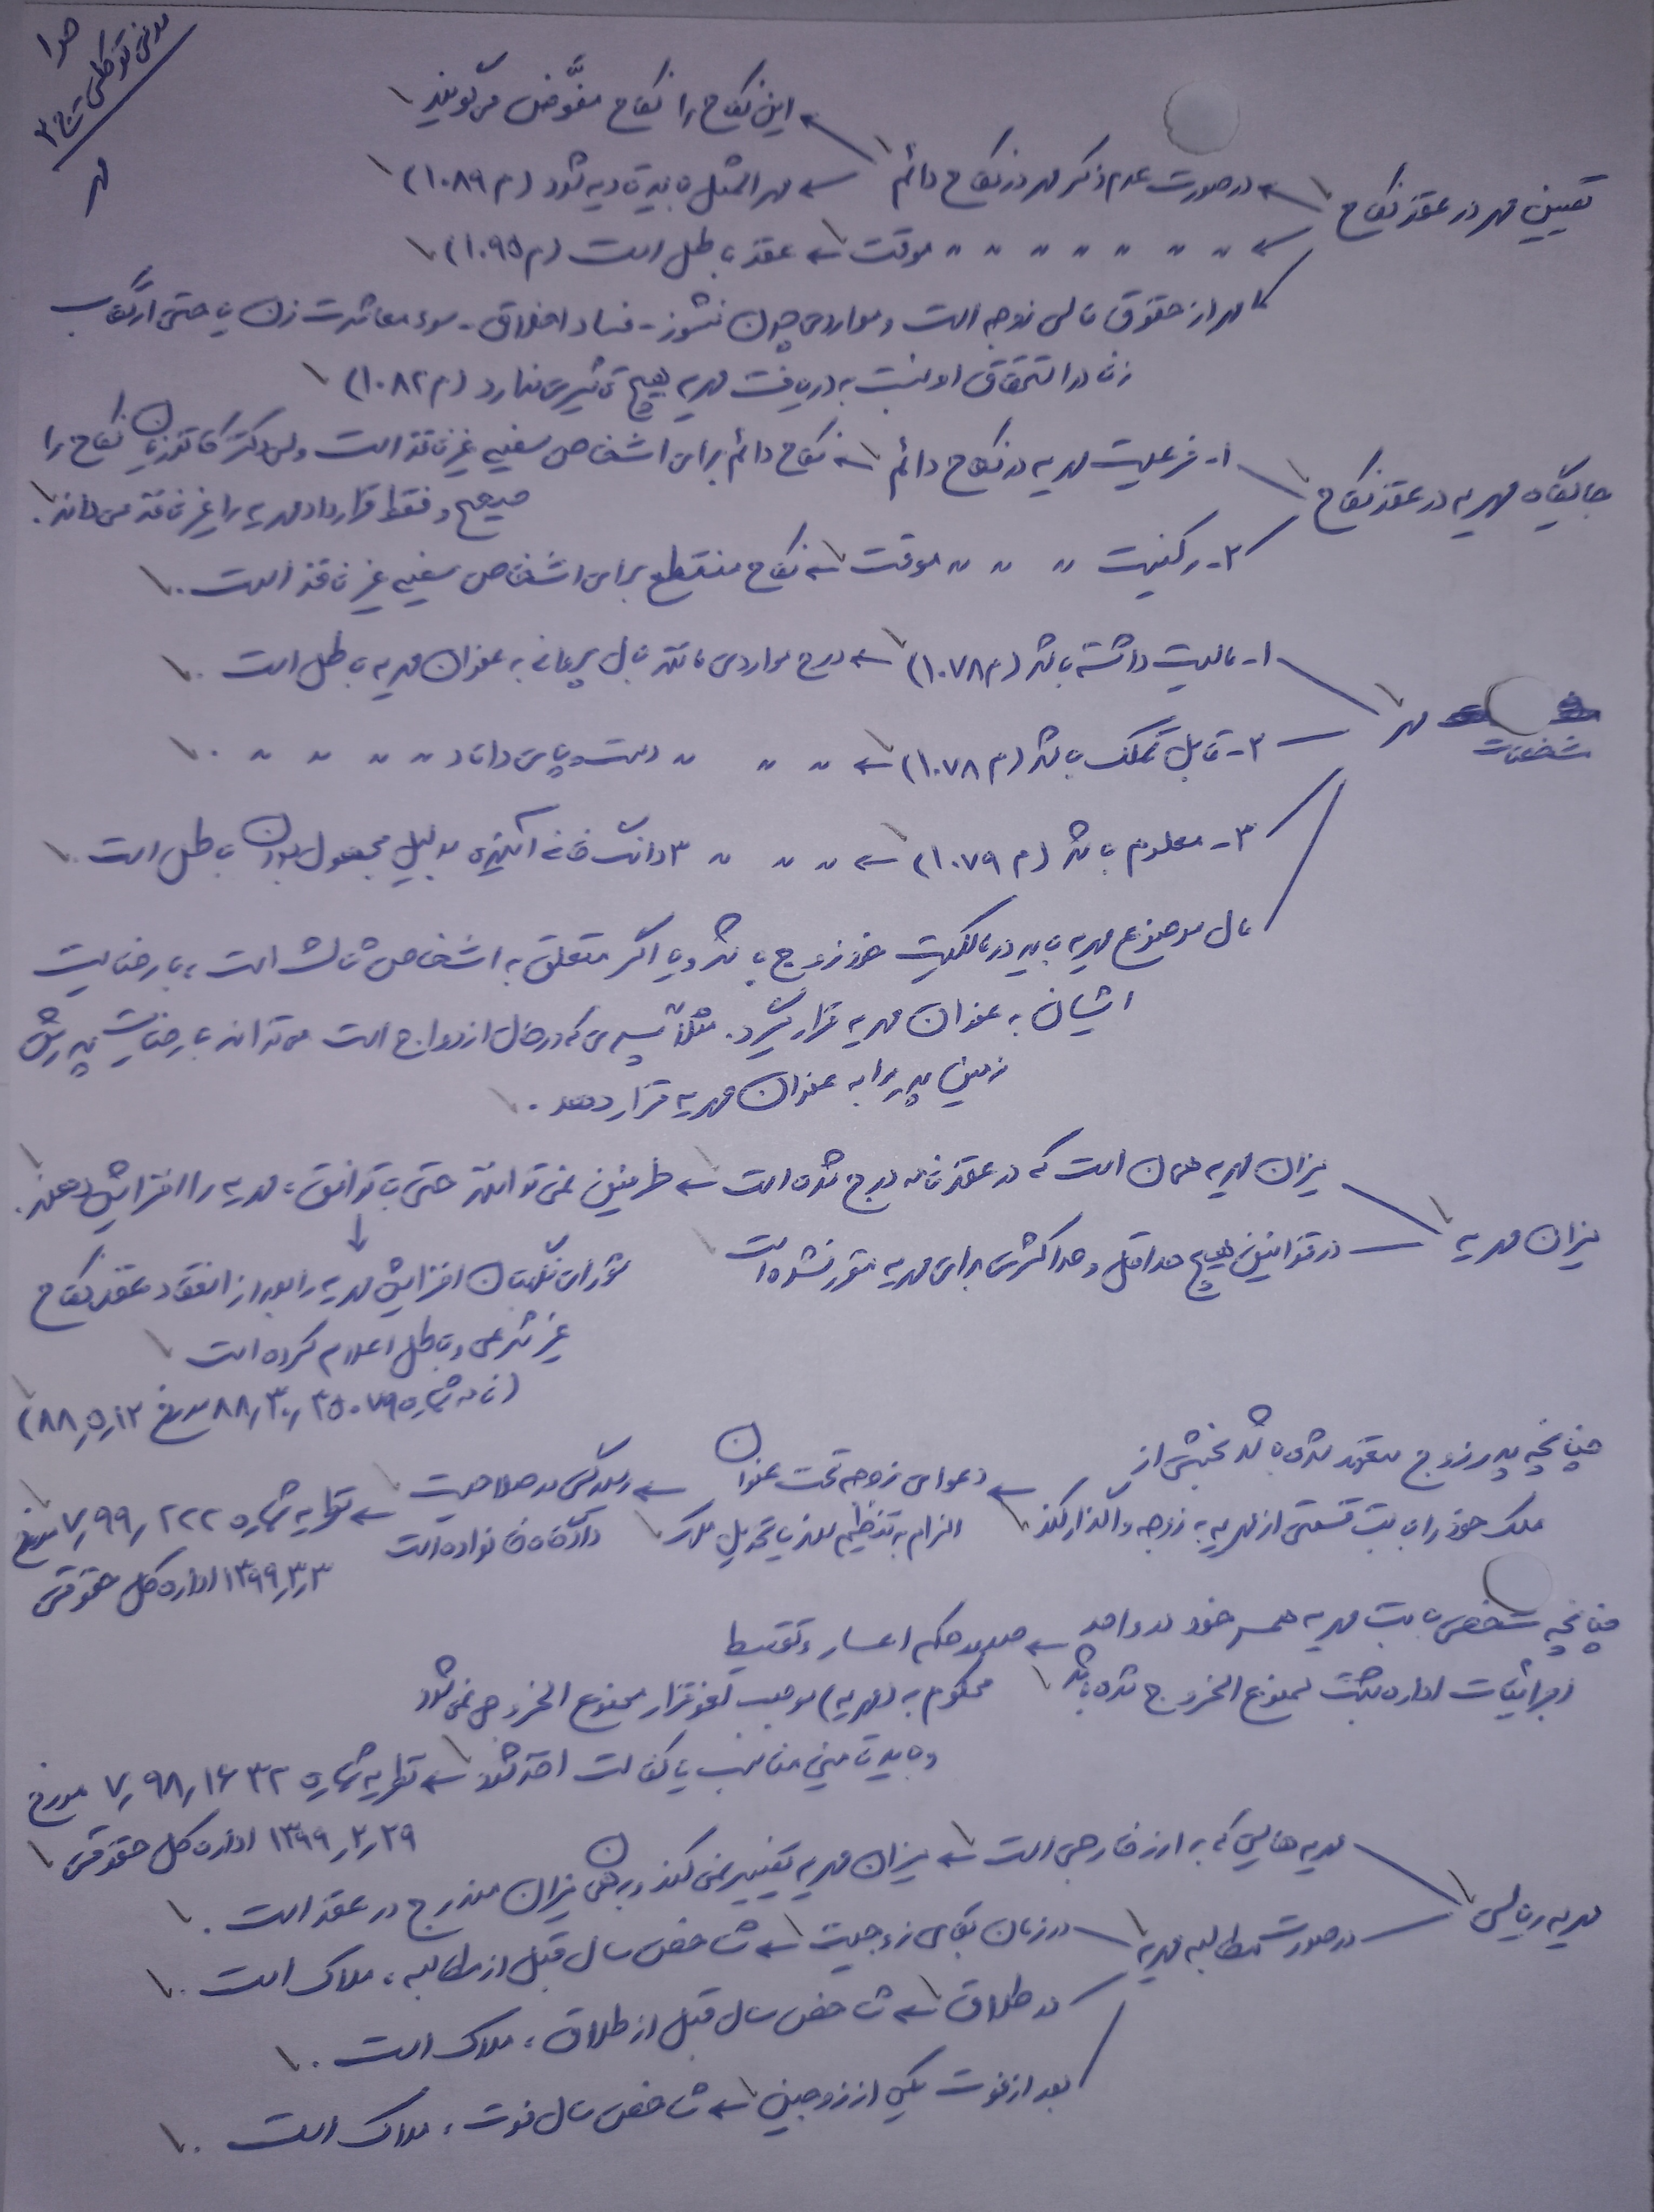 ص ۱
مدنی توکلی ج ۳
مهر
این نکاح را نکاح مفوّض می گویند
تعیین مهر در عقد نکاح ← در صورت عدم ذکر مهر در نکاح دائم ← مهرالمثل باید تادیه شود (م ۱۰۸۹)
← 〃 〃 〃 〃 〃 〃 〃 موقت ← عقد باطل است (م ۱۰۹۵)
مهر از حقوق مالی زوجه است و مواردی چون نشوز - فساد اخلاق - سوء معاشرت زن یا حتی ارتکاب
زنا در استحقاق او نسبت به دریافت مهریه هیچ تاثیری ندارد (م ۱۰۸۲)
جایگاه مهریه در عقد نکاح
۱- فرعیت مهریه در نکاح دائم ← نکاح دائم برای اشخاص سفیه غیرنافذ است ولی دکتر کاتوزیان نکاح را
صحیح و فقط قرارداد مهریه را غیرنافذ می داند.
۲- رکنیت 〃 〃 〃 موقت ← نکاح منقطع برای اشخاص سفیه غیرنافذ است.
مشخصات مهر
۱- مالیت داشته باشد (م ۱۰۷۸) ← درج مواردی مانند بال پروانه به عنوان مهریه باطل است.
۲- قابل تملک باشد (م ۱۰۷۸) ← 〃 〃 〃 دست و پای داماد 〃 〃 〃 〃 .
۳- معلوم باشد (م ۱۰۷۹) ← 〃 〃 〃 ۳ دانگ خانه آینده به دلیل مجهول بودن باطل است.
مال موضوع مهریه باید در مالکیت خود زوج باشد و یا اگر متعلق به اشخاص ثالث است، با رضایت
ایشان به عنوان مهریه قرار گیرد. مثلاً پسری که در حال ازدواج است می تواند با رضایت پدرش
زمین پدر را به عنوان مهریه قرار دهد.
میزان مهریه
میزان مهریه همان است که در عقدنامه درج شده است ← طرفین نمی توانند حتی با توافق، مهریه را افزایش دهند.
در قوانین هیچ حداقل و حداکثری برای مهریه مقرر نشده است
شورای نگهبان افزایش مهریه را بعد از انعقاد عقد نکاح
غیر شرعی و باطل اعلام کرده است
(نامه شماره ۸۸٫۳۰٫۳۵۰۷۹ مورخ ۸۸٫۵٫۱۲)
چنانچه پدر زوج متعهد شده باشد بخشی از
ملک خود را بابت قسمتی از مهریه به زوجه واگذار کند
← دعوای زوجه تحت عنوان
الزام به تنظیم سند یا تحویل ملک
← رسیدگی در صلاحیت
دادگاه خانواده است
← نظریه شماره ۷٫۹۹٫۲۲۲ مورخ
۱۳۹۹٫۳٫۳ اداره کل حقوقی
چنانچه شخصی بابت مهریه همسر خود در واحد
اجرائیات اداره ثبت ممنوع الخروج شده باشد
← صدور حکم اعسار و تقسیط
محکوم به (مهریه) موجب لغو قرار ممنوع الخروجی نمی شود
و باید تامین مناسب یا کفالت اخذ شود ← نظریه شماره ۷٫۹۸٫۱۶۳۲ مورخ
۱۳۹۹٫۲٫۲۹ اداره کل حقوقی
مهریه ریالی
مهریه هایی که به ارز خارجی است ← میزان مهریه تغییر نمی کند و به همان میزان مندرج در عقد است.
در صورت مطالبه مهریه
در زمان بقای زوجیت ← شاخص سال قبل از مطالبه، ملاک است.
در طلاق ← شاخص سال قبل از طلاق، ملاک است.
بعد از فوت یکی از زوجین ← شاخص سال فوت، ملاک است.